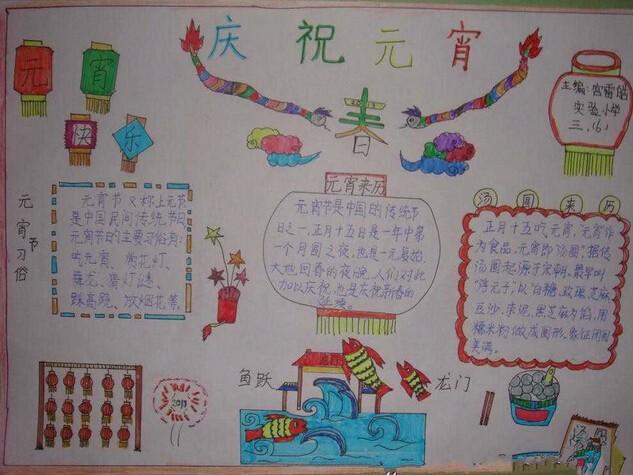 庆祝元宵
元
宵
快
乐
春
主编:宫雷皓
实验小学
三.(6)
元宵节习俗
元宵节又称上元节
是中国民间传统节日
元宵节的主要习俗有:
吃元宵、赏花灯、
舞龙、猜灯谜、
踩高跷、放烟花等。
元宵来历
元宵节是中国的传统节
日之一,正月十五日是一年中第
一个月圆之夜,也是一元复始
大地回春的夜晚,人们对此
加以庆祝,也是庆祝新春的
延续。
汤圆来历
正月十五吃元宵,元宵作
为食品,元宵即"汤圆",据传
汤圆起源于宋朝,最早叫
"浮元子",以白糖、玫瑰、芝麻
豆沙、枣泥、黑芝麻为馅,用
糯米粉做成圆形,象征团圆
美满。
鱼跃
龙门
2013
汤圆